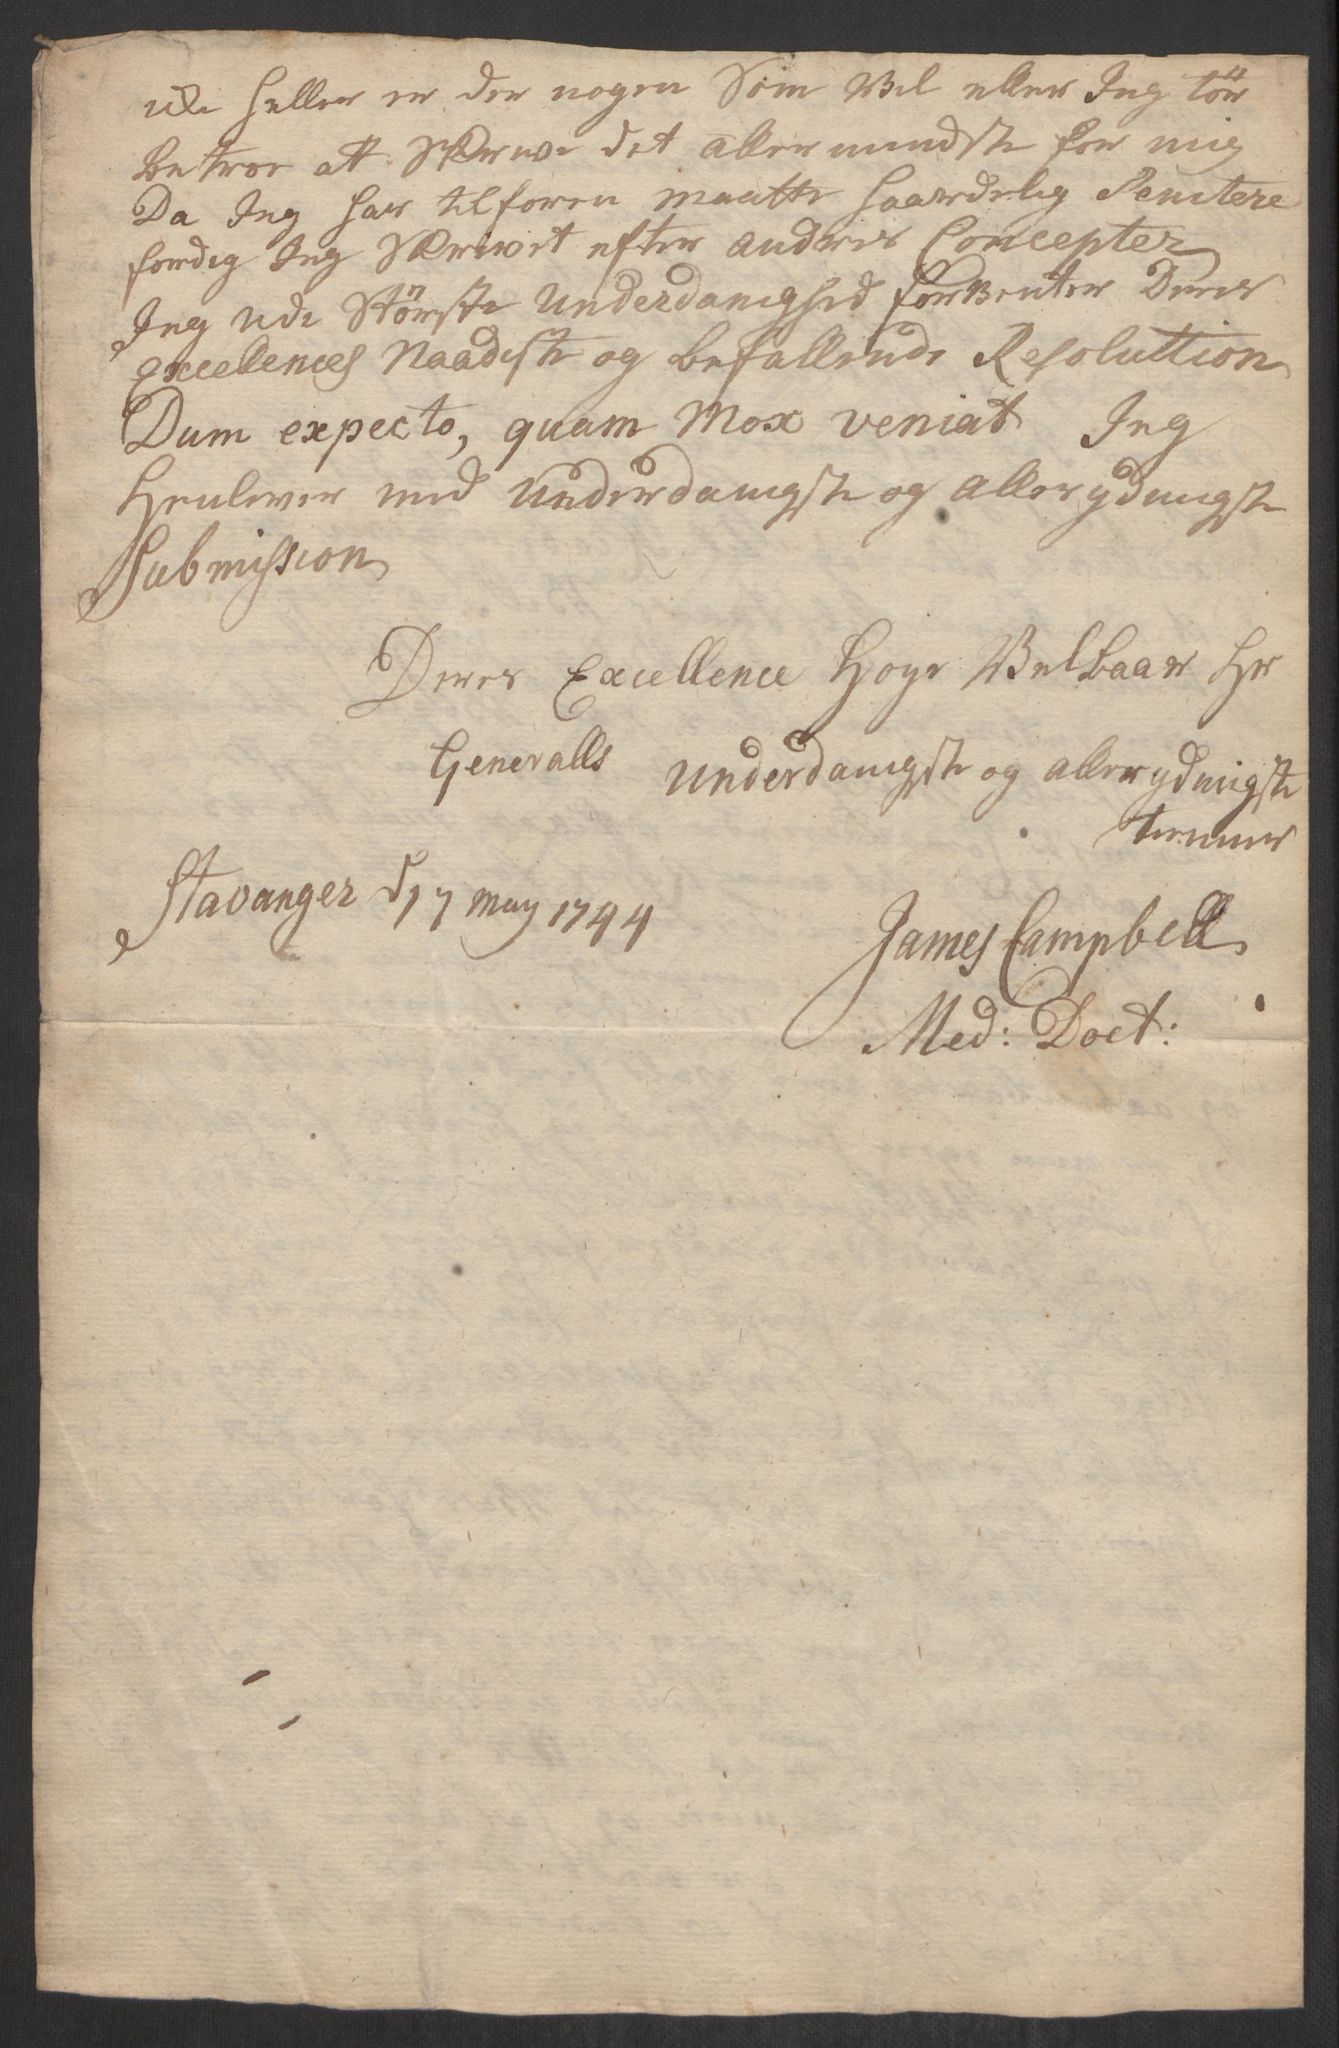 ike heller er der nogen Som Vil eller Jeg tör
betroe att Skrive det allermindste for mig
Da Jeg har tilforen maatte haardelig Penitere
fordig Jeg Skrivet efter andres Concepter
Jeg udi Störste Underdanighed forventer Deres
Excellences Naadiste og befallende Resoluttion
Dum expecto, quam Mox veniat Jeg
Henlever med Underdanigste og allerydmigste
Submission
Deres Excellence Høye Velbaar Hr
Generalls Underdanigste og allerydmigste
tienner
Stavanger d 17 may 1744
James Campbell
Med: Doct: